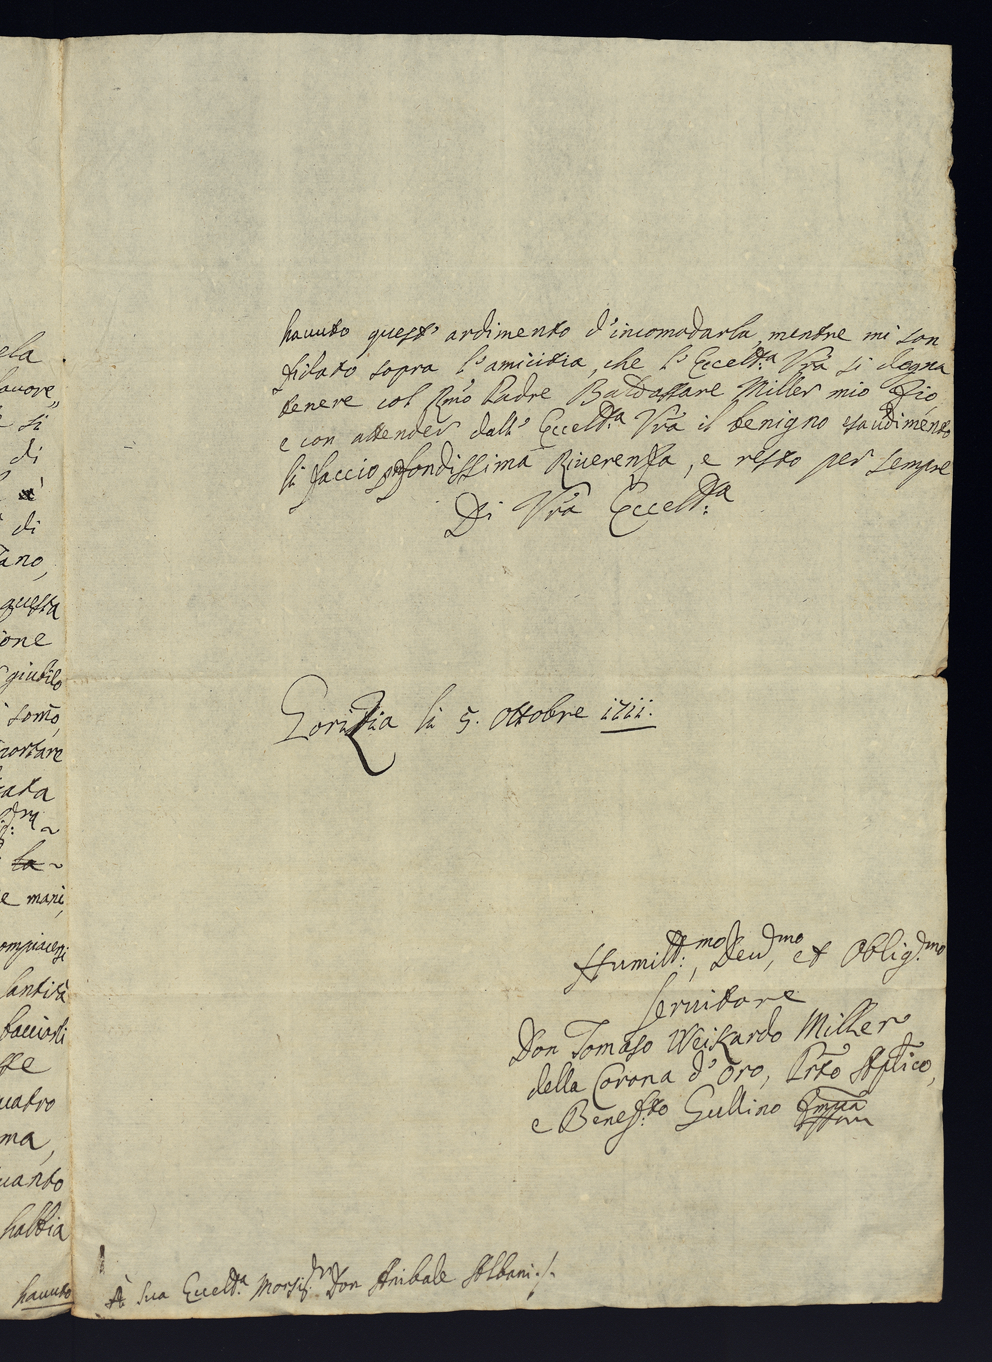 ela
favore,,
si
di
di
Tano,
questa
ione
giubilo
som̃o,
portare
tata
la ~
e mani,
ompiacersi
Santità
bacciarli
uatro
ma,
uando
habbia
hauuto
hauuto quest' ardimento d'incomodarla, mentre mi son
fidato sopra l'amicitia, che l' Eccell:ᵃ Vr̃a si degna
tenere col Rm̃o Padre Baldassare Miller mio Zio,
e con attender dall' Eccell:ᵃ Vr̃a il benigno esaudimento
li faccio profondissima Riuerenza, e resto per sempre
Di Vr̃a Eccell:ᵃ
Gorizia li 5. Ottobre 1711.
Humill:ᵐᵒ, Deu:ᵐᵒ, et Oblig:ᵐᵒ
Seruitore
Don Tomaso Weikardo Miller
della Corona d'Oro, Prto Aplico,
e Benef:ᵗᵒ Gullino
A Sua Eccell:ᵃ Monsig:ʳ Don Anibale Albani:/.